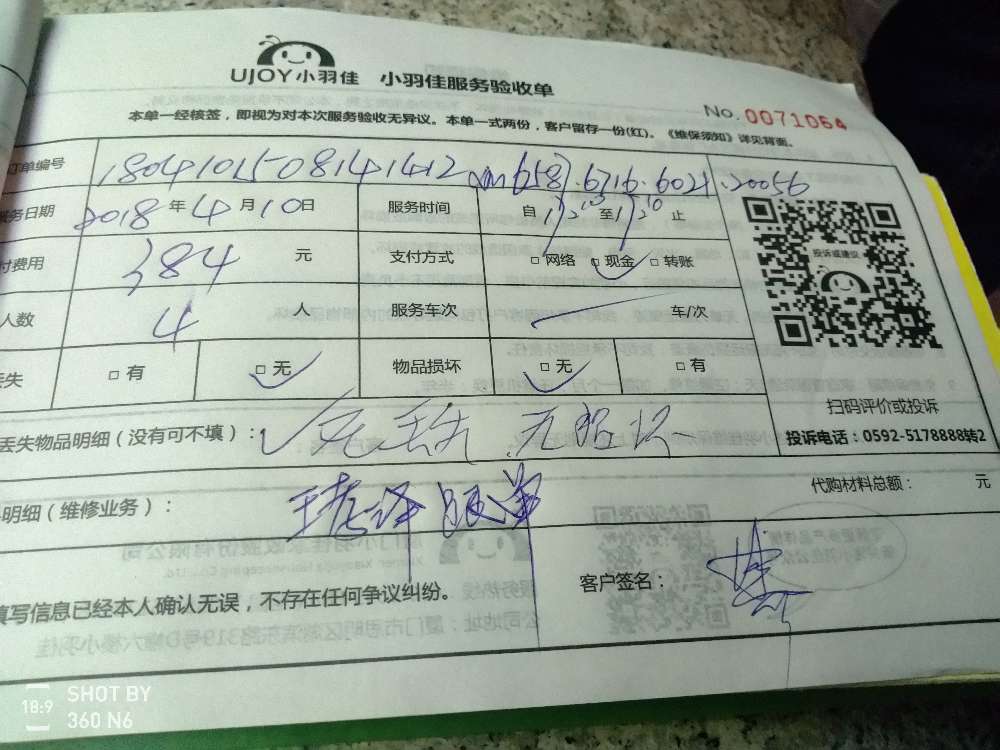 UJOY小羽佳 小羽佳服务验收单
No.0071054
本单一经核签，即视为对本次服务验收无异议。本单一式两份，客户留存一份(红)。《维保须知》详见背面。
订单编号 1804101508141412
服务日期 2018年4月10日 服务时间 自 至 止
付费用 384 元 支付方式 □网络 □现金 □转账
人数 4 人 服务车次 车/次
丢失 □有 □无 物品损坏 □无 □有
投诉或建议
扫码评价或投诉
投诉电话：0592-5178888转2
丢失物品明细（没有可不填）： 无丢失 无损坏
明细（维修业务）：
代购材料总额： 元
填写信息已经本人确认无误，不存在任何争议纠纷。
客户签名：
SHOT BY
360 N6
18:9